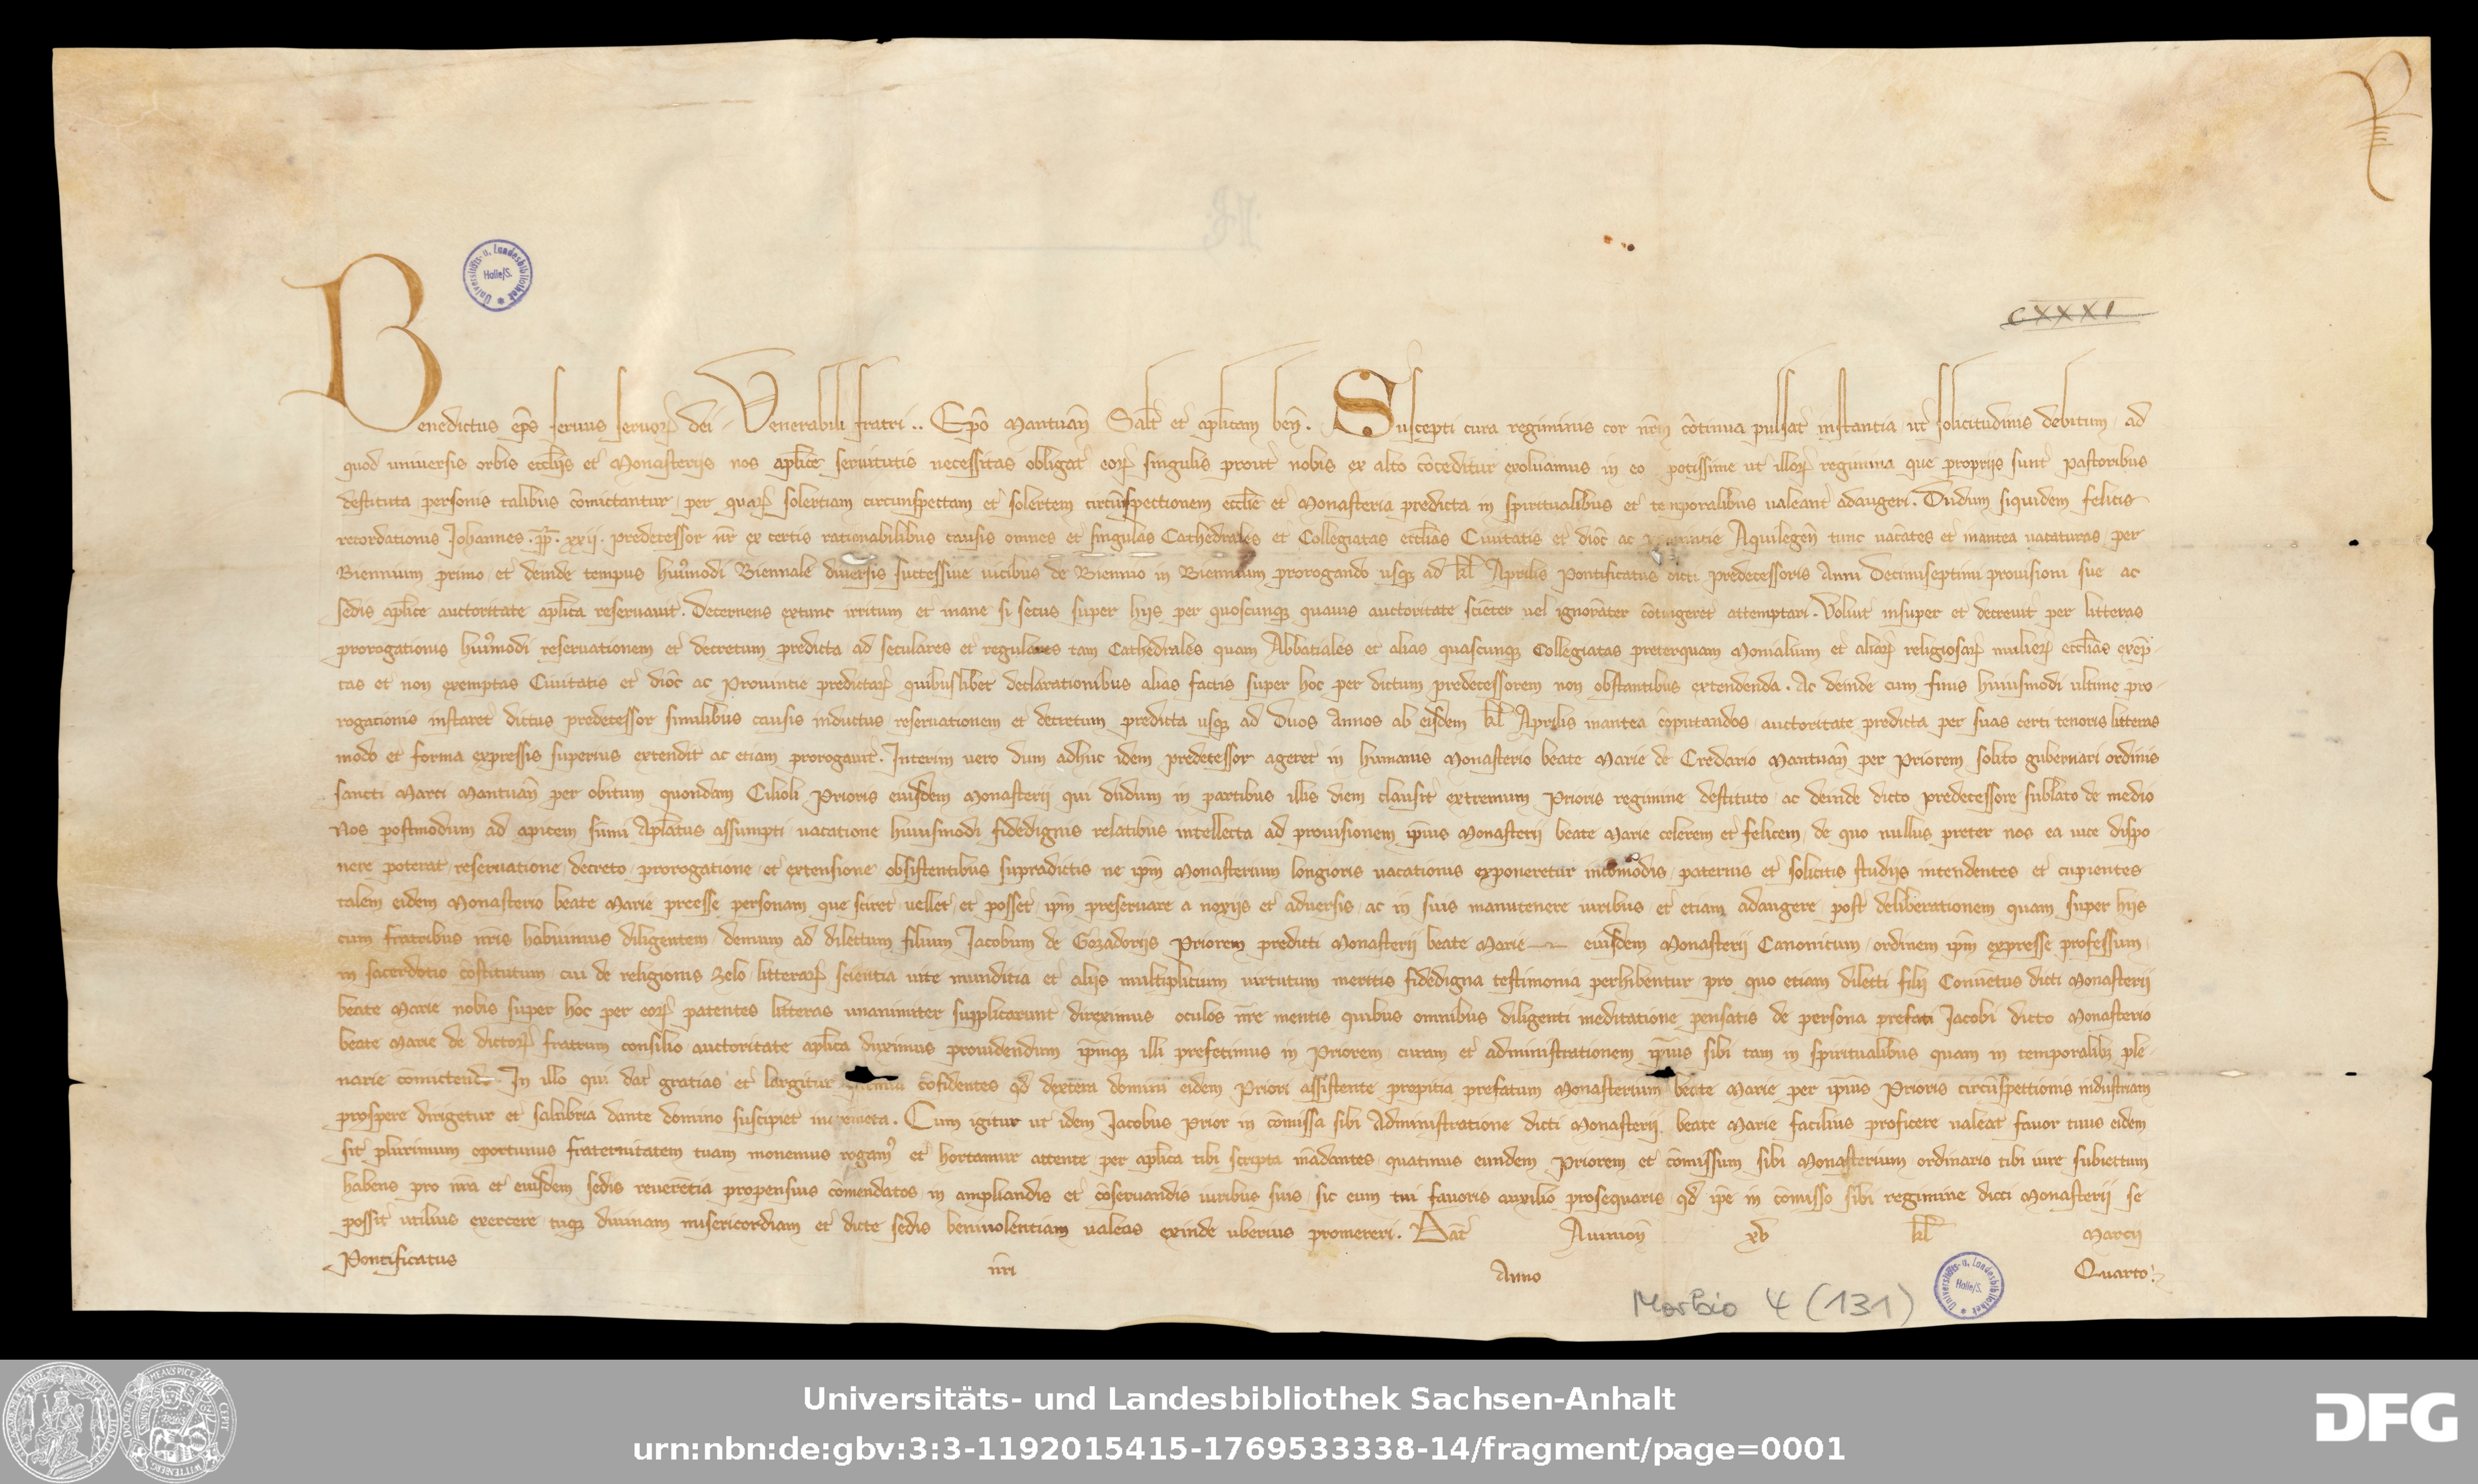 CXXXI
Benedictus ep̄s seruus seruoꝝ dei Venerabili fratri .. Ep̄o Mantuan̄ Salt̄ et ap̄licam ben̄. Suscepti cura regiminis cor nr̄m cōtinua pulsat instantia ut solicitudinis debitum ad
quod universis orbis eccl̄ijs et Monasterijs nos apl̄ice seruitutis necessitas obligat eoꝝ singulis prout nobis ex alto cōceditur exoluamus in eo potissime ut illoꝝ regimina que proprijs sunt pastoribus
destituta personis talibus cōmictantur per quaꝝ solertiam circunspectam et solertem circūspectionem eccl̄ie et Monasteria predicta in spiritualibus et temporalibus ualeant adaugeri. Dudum siquidem felicis
recordationis Johannes .pp̄. xxij. predecessor nr̄ ex certis rationabilibus causis omnes et singulas Cathedrales et Collegiatas eccl̄ias Ciuitatis et dioc̄ ac Aquilegen̄ tunc uacātes et inantea uacaturas per
Biennium primo et deinde tempus huiꝰmodi Biennale diuersis successiue uicibus de Biennio in Biennium prorogando usqꝫ ad kl̄ Aprilis Pontificatus dicti predecessoris Anni Decimiseptimi prouisioni sue ac
sedis apl̄ice auctoritate apl̄ica reseruauit. Decernens extunc irritum et inane si secus super hijs per quoscunqꝫ quauis auctoritate sciēter uel ignorāter cōtingeret attemptari. Voluit insuper et decreuit per litteras
prorogationis huiꝰmodi reseruationem et decretum predicta ad seculares et regulares tam Cathedrales quam Abbatiales et alias quascunqꝫ Collegiatas preterquam Monialium et aliaꝝ religiosaꝝ mulieꝝ eccl̄ias exēp
tas et non exemptas Ciuitatis et dioc̄ ac Prouincie predictaꝝ quibuslibet declarationibus alias factis super hoc per dictum predecessorem non obstantibus extendenda. Ac deinde cum finis huiusmodi ultime pro-
rogationis instaret dictus predecessor similibus causis inductus reseruationem et decretum predicta usqꝫ ad Duos Annos ab eisdem kl̄ Aprilis inantea cōputandos auctoritate predicta per suas certi tenoris litteras
modo et forma expressis superius extendit ac etiam prorogauit. Interim uero dum adhuc idem predecessor ageret in humanis Monasterio beate Marie de Credario Mantuan̄ per Priorem solito gubernari ordinis
sancti Marci Mantuan̄ per obitum quondam Cilioli Prioris eiusdem Monasterij qui dudum in partibus illis diem clausit extremum Prioris regimine destituto ac deinde dicto predecessore sublato de medio
Nos postmodum ad apicem sūmi Apl̄atus assumpti uacatione huiusmodi fidedignis relatibus intellecta ad prouisionem ip̄ius Monasterij beate Marie celerem et felicem de quo nullus preter nos ea uice dispo
nere poterat reseruatione decreto prorogatione et extensione obsistentibus supradictis ne ip̄m Monasterium longioris uacationis exponeretur incōmodis paternis et solicitis studijs intendentes et cupientes
talem eidem Monasterio beate Marie preesse personam que sciret uellet et posset ip̄m preseruare a noxijs et aduersis ac in suis manutenere iuribus et etiam adaugere post deliberationem quam super hijs
cum fratribus nr̄is habuimus diligentem demum ad dilectum filium Jacobum de Gozadorijs Priorem predicti Monasterij beate Marie eiusdem Monasterij Canonicum ordinem ip̄m expresse professum
in sacerdotio cōstitutum cui de religionis zelo litteraꝝ scientia uite munditia et alijs multiplicium uirtutum meritis fidedigna testimonia perhibentur pro quo etiam dilecti filij Conuētus dicti Monasterij
beate Marie nobis super hoc per eoꝝ patentes litteras unanimiter supplicarunt direximus oculos nr̄e mentis quibus omnibus diligenti meditatione pensatis de persona prefati Jacobi dicto Monasterio
beate Marie de dictoꝝ fratrum consilio auctoritate apl̄ica duximus prouidendum ip̄umqꝫ illi prefecimus in Priorem curam et administrationem ip̄ius sibi tam in spiritualibus quam in temporalibꝫ ple-
narie cōmictendo. In illo qui dat gratias et largitur cōfidentes qd̄ dextera domini eidem Priori assistente propitia prefatum Monasterium beate Marie per ip̄ius Prioris circūspectionis industriam
prospere dirigetur et salubria dante domino suscipiet incrementa. Cum igitur ut idem Jacobus Prior in cōmissa sibi Administratione dicti Monasterij beate Marie facilius proficere ualeat fauor tuus eidem
sit plurimum oportunus fraternitatem tuam monemus rogamꝰ et hortamur attente per apl̄ica tibi scripta mādantes quatinus eundem Priorem et cōmissum sibi Monasterium ordinario tibi iure subiectum
habens pro nr̄a et eiusdem sedis reuerētia propensius cōmendatos in ampliandis et cōseruandis iuribus suis sic eum tui fauoris auxilio prosequaris qd̄ ip̄e in cōmisso sibi regimine dicti Monasterij se
possit utilius exercere tuqꝫ diuinam misericordiam et dicte sedis beniuolentiam ualeas exinde uberius promereri. Dat̄ Auinion̄ xv kl̄ Marcij
Pontificatus nr̄i Anno Quarto
Morbio 4 (131)
Universitäts- u. Landesbibliothek Halle/S.
Universitäts- u. Landesbibliothek Halle/S.
Universitäts- und Landesbibliothek Sachsen-Anhalt
urn:nbn:de:gbv:3:3-1192015415-1769533338-14/fragment/page=0001
DFG